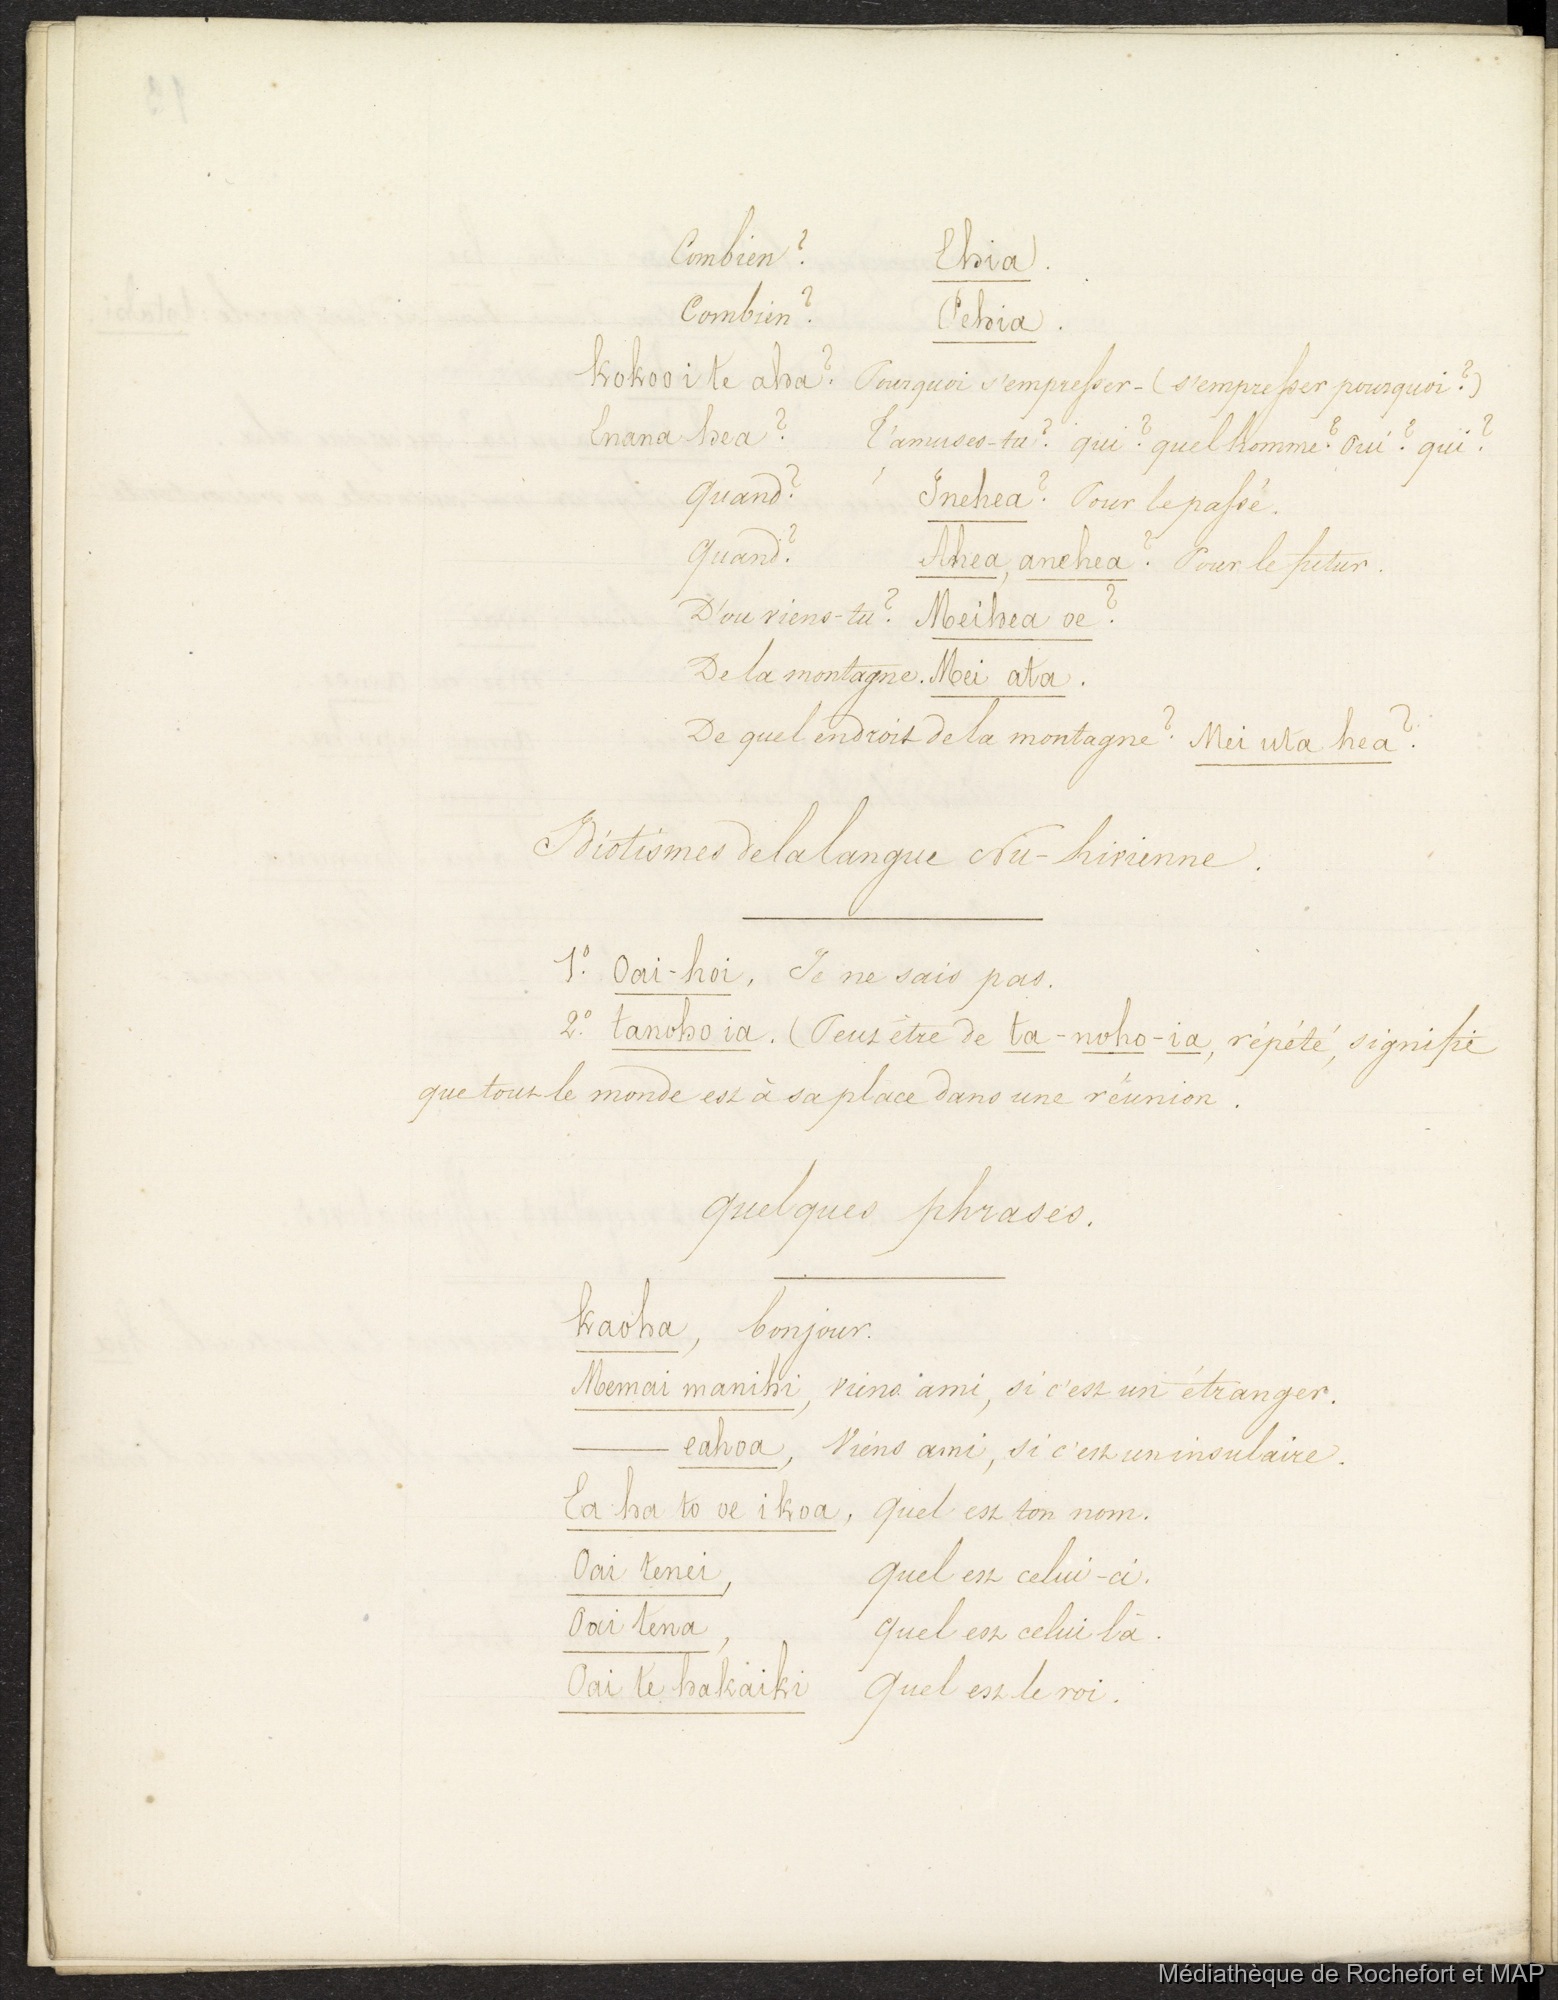 Combien? Ehia.
Combien? Pehia.
Kokoo i te aha? Pourquoi s'empresser - (s'empresser pourquoi?)
Enana hea? T'amuses-tu? qui? quel homme? Oui? qui?
Quand? Inehea? Pour le passé.
Quand? Ahea, anehea? Pour le futur.
D'ou viens-tu? Meihea oe?
De la montagne. Mei uta.
De quel endroit de la montagne? Mei uta hea?
Idiotismes de la langue Nu-hivienne.
1° Oai-hoi, Je ne sais pas.
2° tanoho ia. (Peut être de ta-noho-ia, répété, signifie
que tout le monde est à sa place dans une réunion.
Quelques phrases.
Kaoha, bonjour.
Memai manihi, viens ami, si c'est un étranger.
—— eahoa, Viens ami, si c'est un insulaire.
Ea ha to oe ikoa, Quel est ton nom.
Oai tenei, Quel est celui-ci.
Oai tena, Quel est celui là.
Oai te hakaiki Quel est le roi.
Médiathèque de Rochefort et MAP